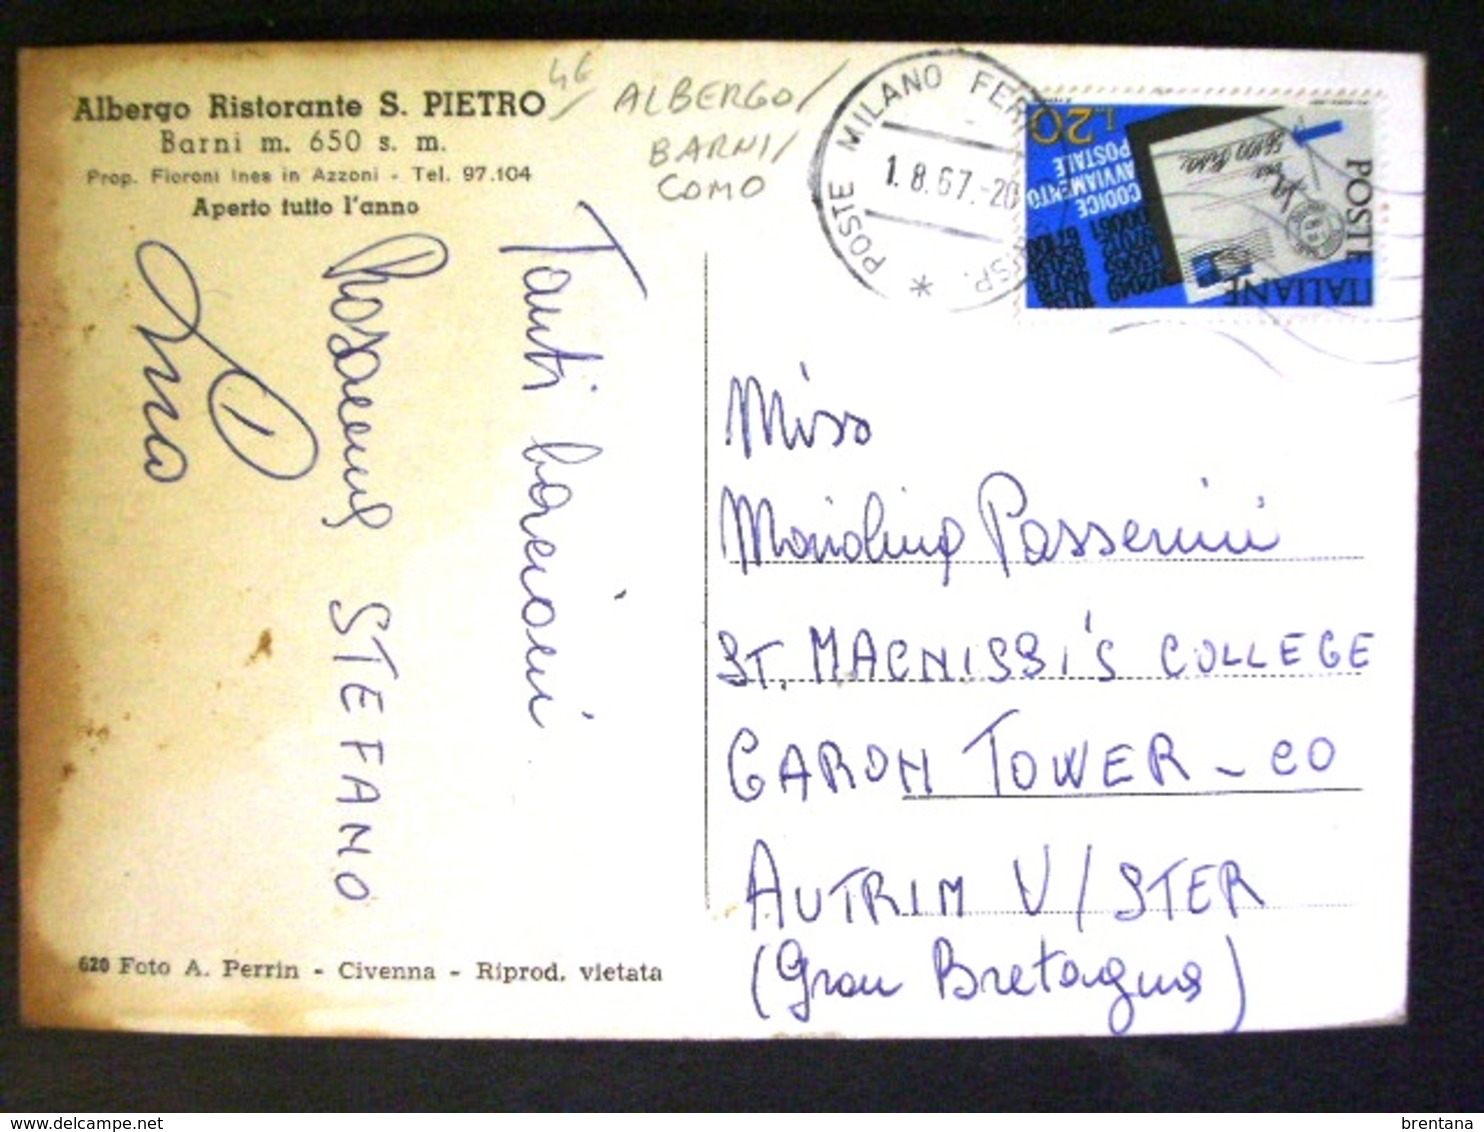 Albergo Ristorante S. PIETRO
Barni m. 650 s. m.
Prop. Fioroni Ines in Azzoni - Tel. 97.104
Aperto tutto l'anno
ALBERGO/
BARNI/
COMO
POSTE MILANO FERR
1.8.67.-20
L.20
CODICE
AVVIAMENTO
POSTALE
POSTE
ITALIANE
Tanti bacioni
Rosanna STEFANO
Miss
Mariolina Passerini
ST. MACNISSI'S COLLEGE
GARON TOWER - CO
AUTRIM U/STER
(Gran Bretagna)
620 Foto A. Perrin - Civenna - Riprod. vietata
brentana